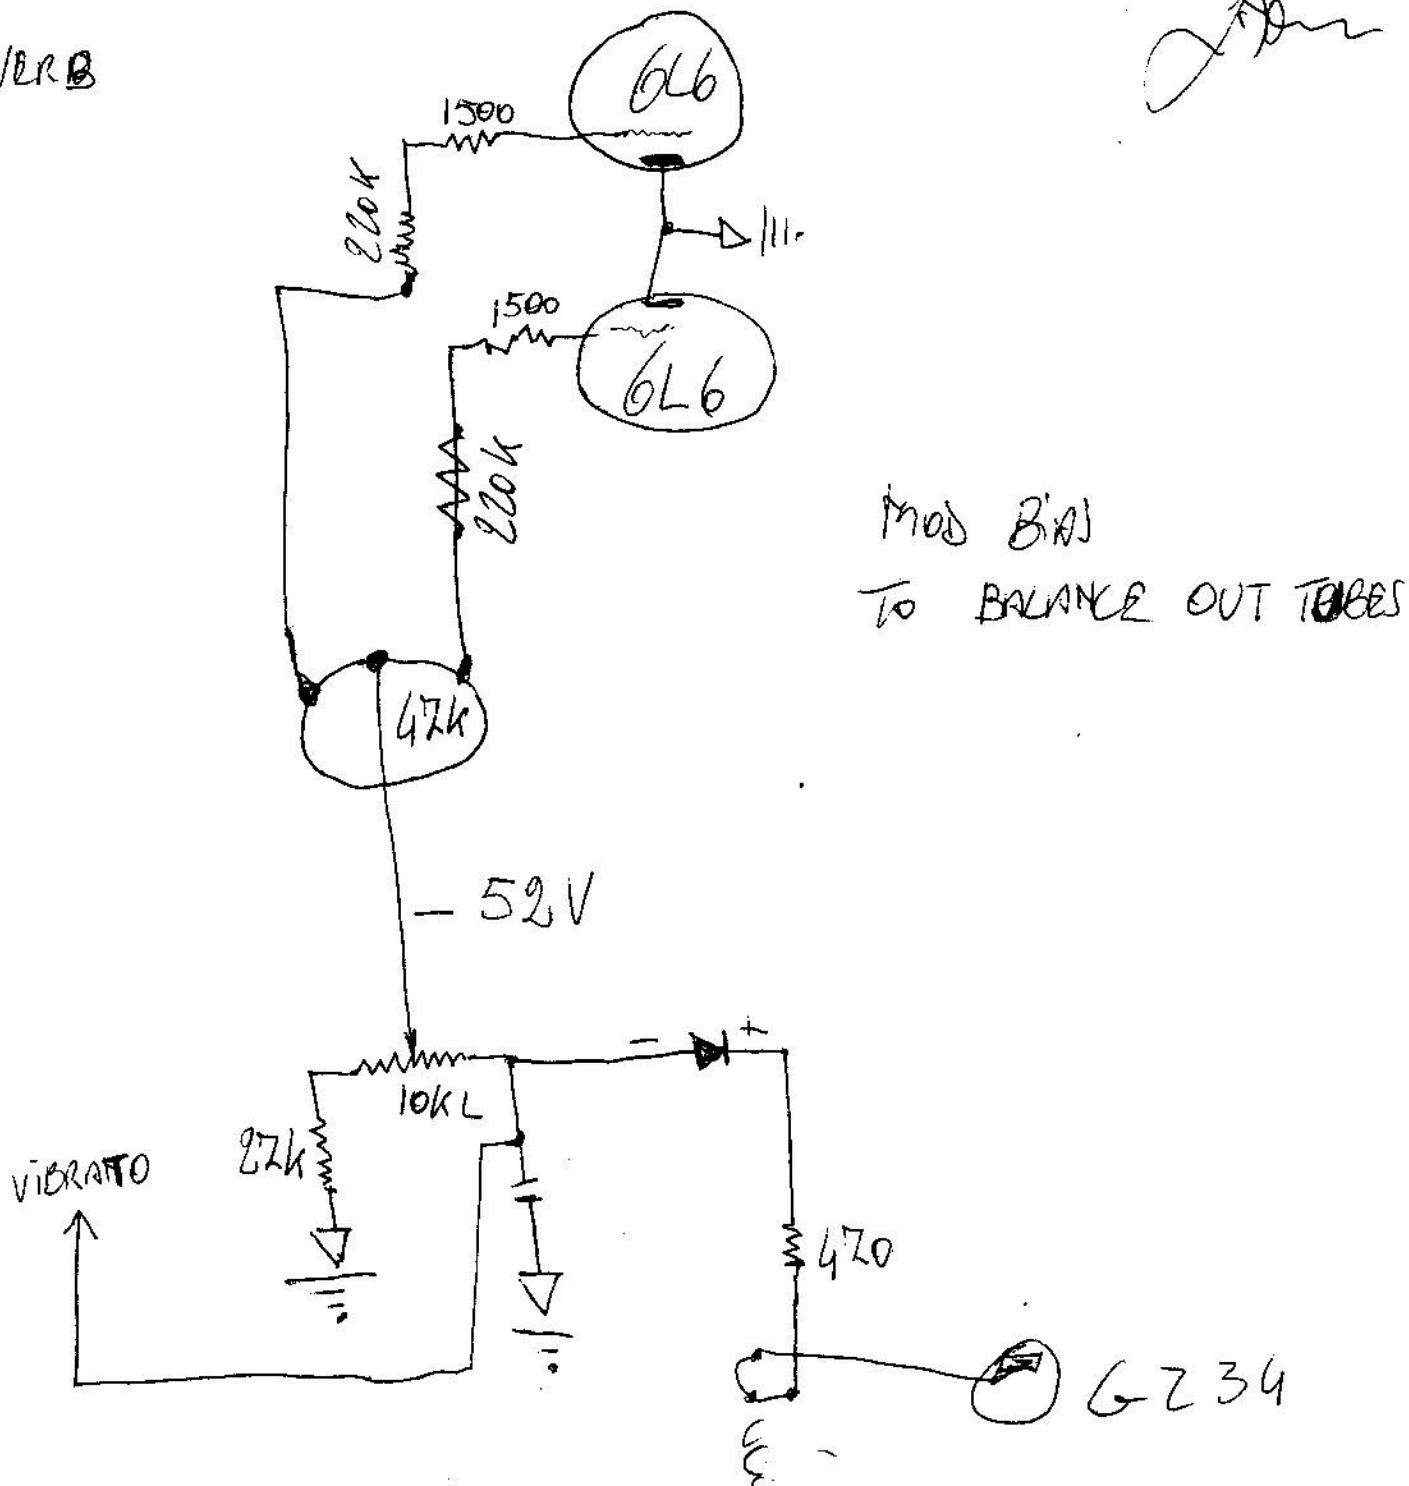 6L6
1500
220K
1500
6L6
220K
MOD BIAS
TO BALANCE OUT TUBES
47K
- 52V
- +
10KL
27K
VIBRATO
470
GZ34